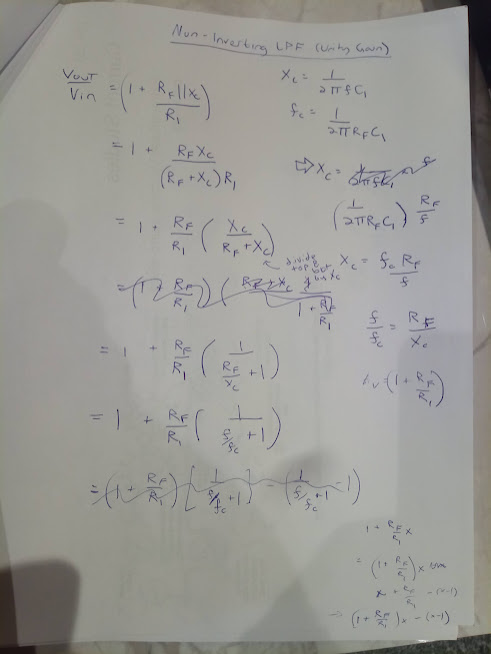 Non-Inverting LPF (Unity Gain)
Vout/Vin = (1 + RF||Xc / R1)
= 1 + RF Xc / (RF + Xc) R1
= 1 + RF/R1 ( Xc / RF + Xc )
divide
top & bot
by Xc
= (1 + RF/R1) (
= 1 + RF/R1 ( 1 / RF/Xc + 1 )
= 1 + RF/R1 ( 1 / f/fc + 1 )
= (1 + RF/R1) [ 1 / f/fc + 1 ] - ( 1 / f/fc + 1 - 1 )
Xc = 1 / 2πfC1
fc = 1 / 2πRFC1
⇒ Xc =
( 1 / 2πRFC1 ) RF/f
Xc = fc RF / f
f/fc = RF/Xc
Av = (1 + RF/R1)
1 + RF/R1 x
= (1 + RF/R1) x
x + RF/R1 - (x-1)
→ (1 + RF/R1) x - (x-1)